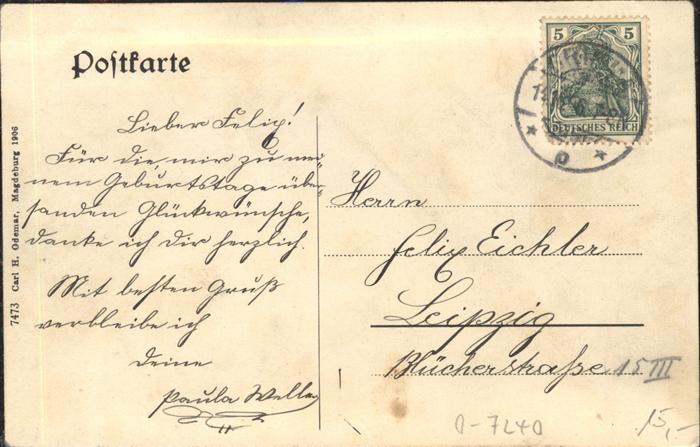 Postkarte
5 5
DEUTSCHES REICH
Lieber Felix!
Für die, mir zu mei-
nem Geburtstage über-
sanden Glückwünsche,
danke ich Dir herzlich.
Mit besten Gruß
verbleibe ich
Deine
Paula
Herrn
Felix Eichler
Leipzig
Blücherstraße 15 III
7473 Carl H. Odemar, Magdeburg 1906
O-7240
15,-